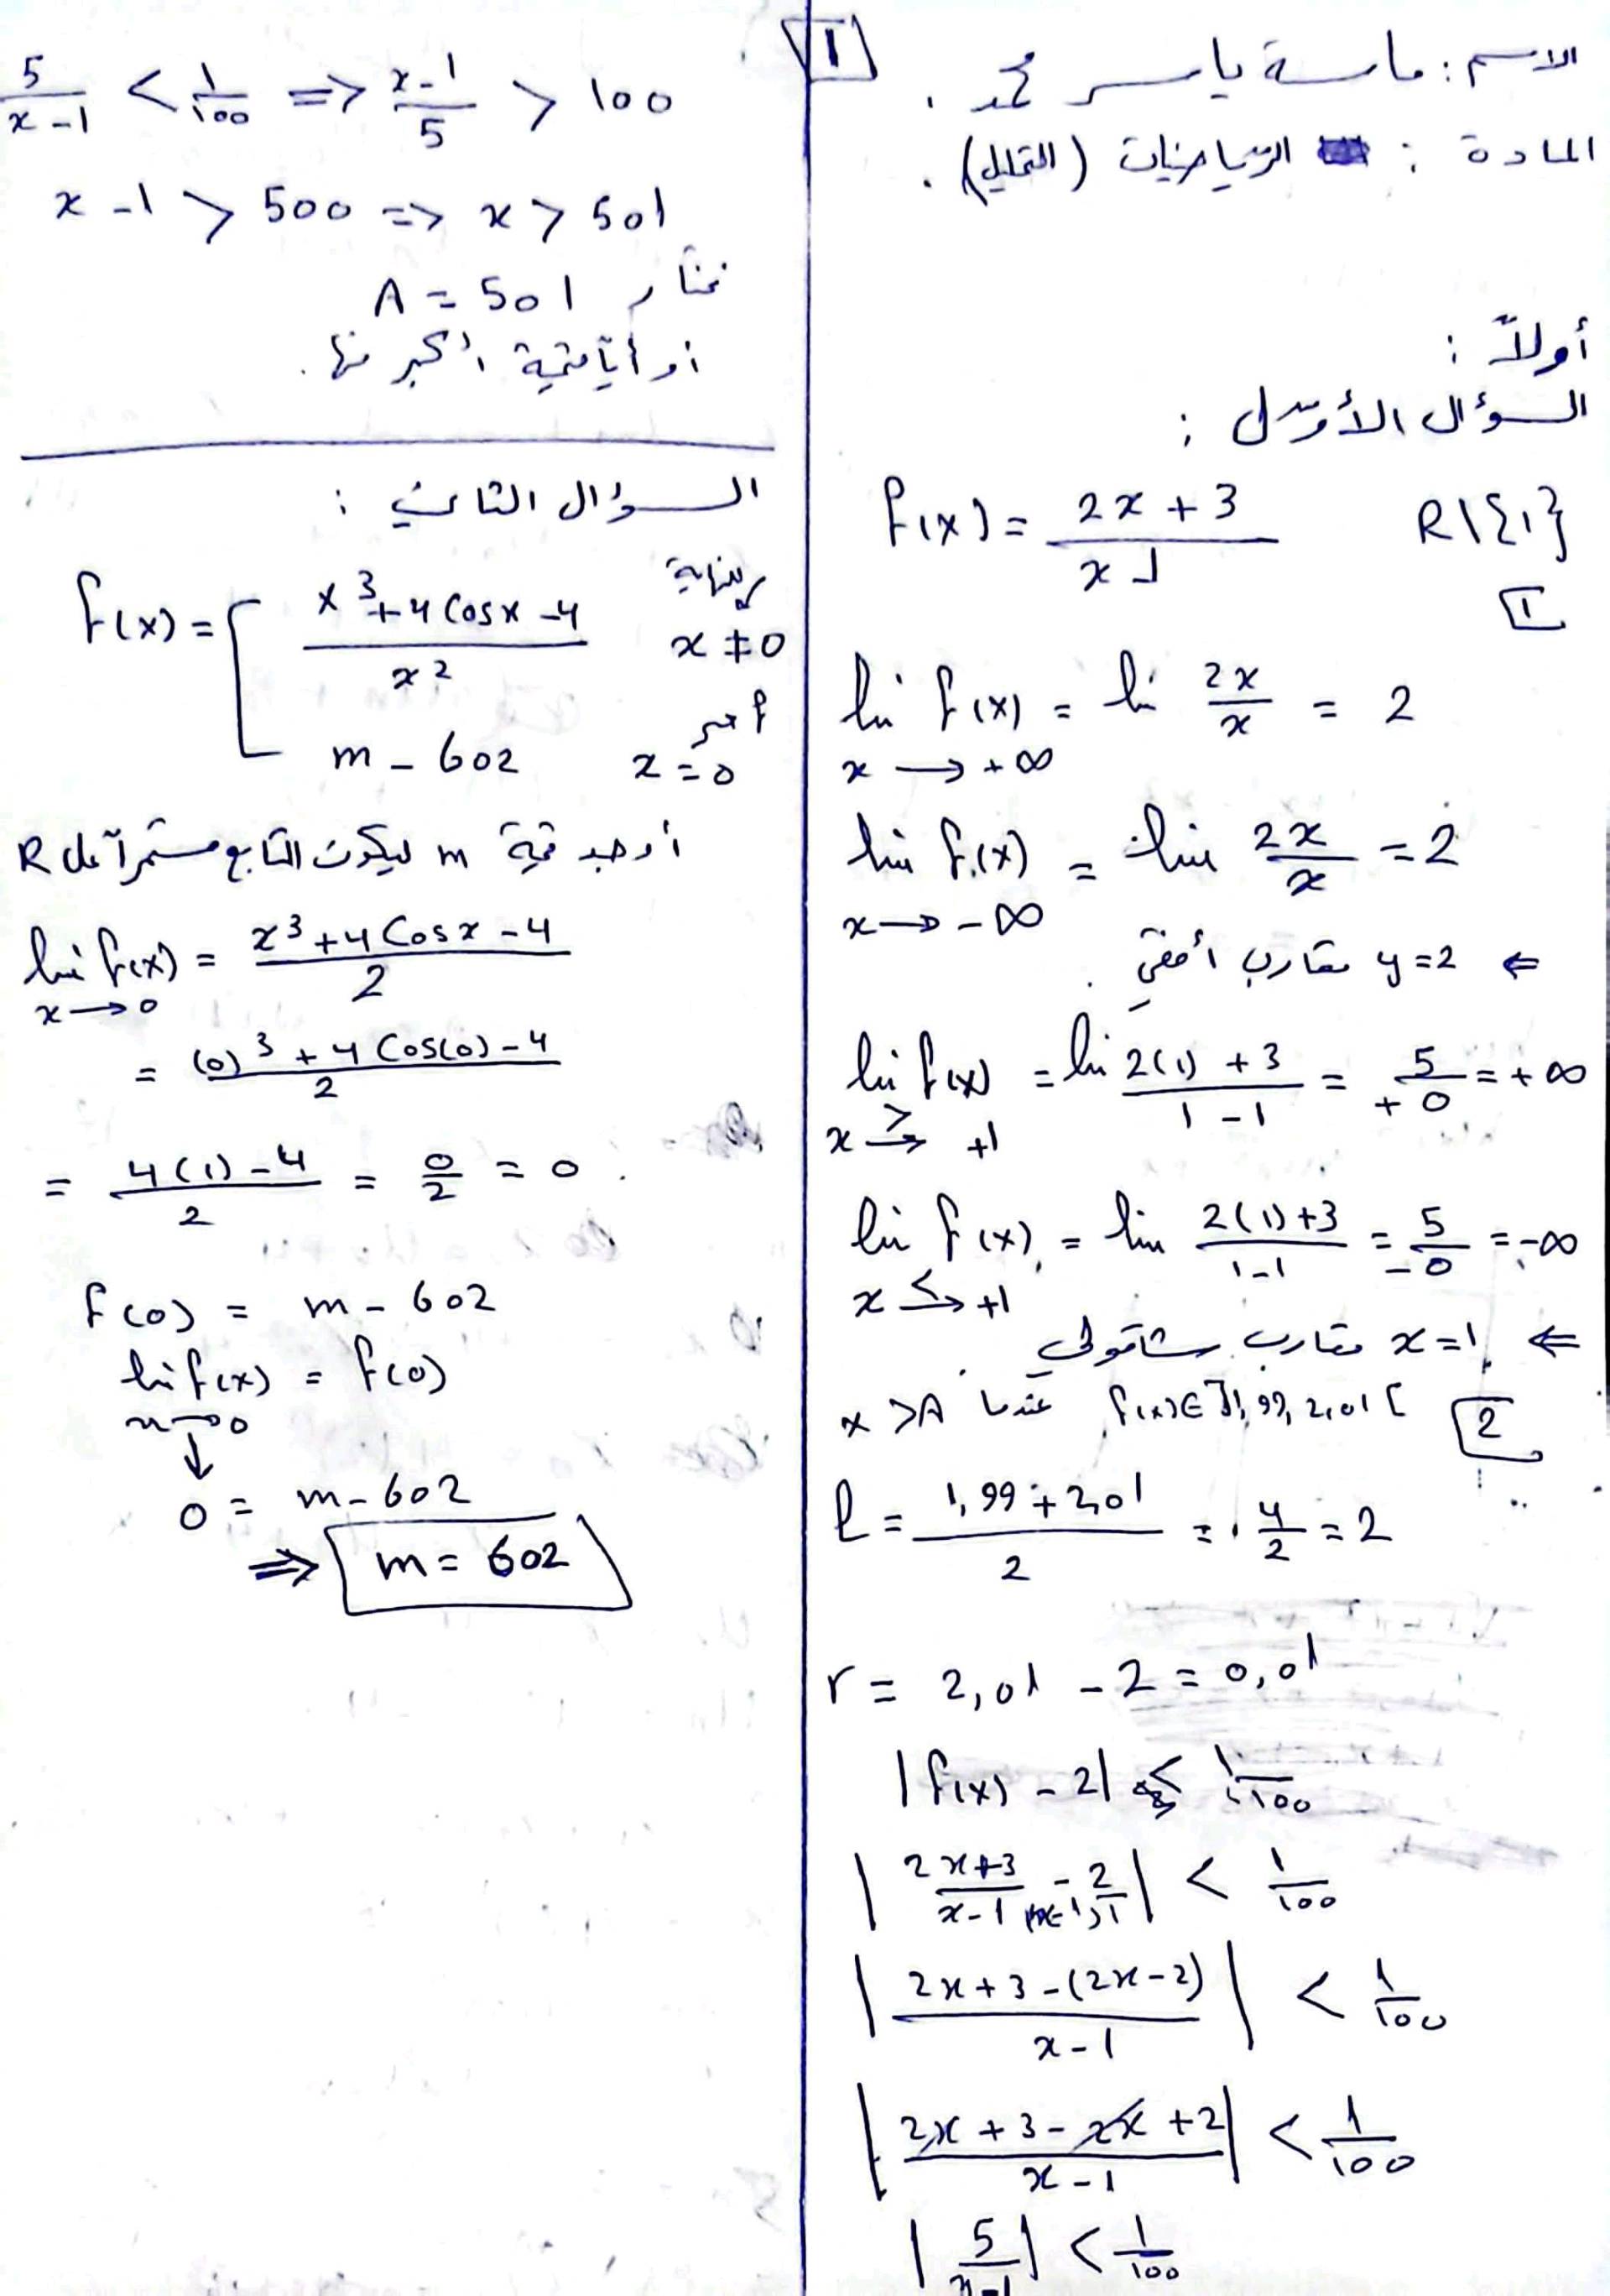 1
الاسم : ماسة ياسر محمد .
المادة : الرياضيات (التحليل) .
أولاً :
السؤال الأول :
f(x) = (2x + 3)/(x - 1)   R\{1}
1
lim f(x) = lim 2x/x = 2
x → +∞
lim f(x) = lim 2x/x = 2
x → -∞
⇐ y = 2 مقارب أفقي .
lim f(x) = lim (2(1) + 3)/(1 - 1) = 5/+0 = +∞
x →(>) +1
lim f(x) = lim (2(1)+3)/(1-1) = 5/-0 = -∞
x →(<) +1
⇐ x = 1 مقارب شاقولي .
2 f(x) ∈ ]1,99, 2,01[ عندما x > A
l = (1,99 + 2,01)/2 = 4/2 = 2
r = 2,01 - 2 = 0,01
|f(x) - 2| < 1/100
|(2x+3)/(x-1) - 2/1| < 1/100
|(2x + 3 - (2x - 2))/(x - 1)| < 1/100
|(2x + 3 - 2x + 2)/(x - 1)| < 1/100
|5/(x-1)| < 1/100
5/(x-1) < 1/100 => (x-1)/5 > 100
x - 1 > 500 => x > 501
نختار A = 501
أو أيّ قيمة أكبر منها .
السؤال الثاني :
f(x) = [ (x³ + 4 Cos x - 4)/x²   نهاية x ≠ 0
m - 602   x = 0
أوجد قيمة m ليكون التابع مستمراً على R
lim f(x) = (x³ + 4 Cos x - 4)/2
x → 0
= ((0)³ + 4 Cos(0) - 4)/2
= (4(1) - 4)/2 = 0/2 = 0 .
f(0) = m - 602
lim f(x) = f(0)
x → 0
↓
0 = m - 602
⇒ m = 602